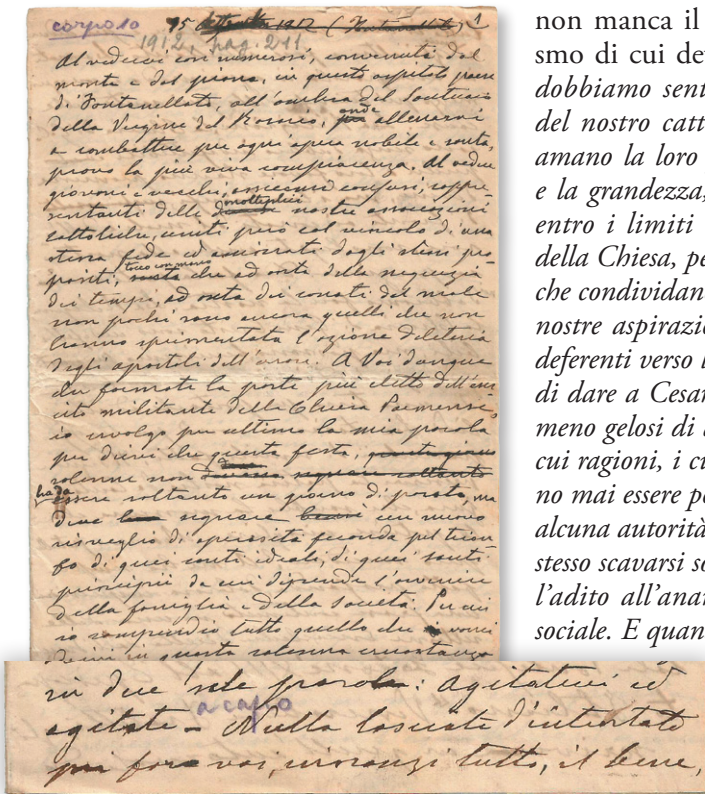 corpo 10 15 settembre 1912 (Fontanellato) 1
1912, pag. 211
Al vedervi così numerosi, convenuti dal
monte e dal piano, in questo ospitale paese
di Fontanellato, all'ombra del Santuario
onde
della Vergine del Rosario, per allenarvi
a combattere per ogni opera nobile e santa,
provo la più viva compiacenza. Al veder
giovani e vecchi, assieme confusi, rappre
molteplici
sentanti delle nostre associazioni
cattoliche, uniti però col vincolo d'una
stessa fede ed animati dagli stessi pro
tocco con mano
positi, che ad onta della nequizia
dei tempi, ad onta dei conati del male
non pochi sono ancora quelli che non
hanno sperimentata l'azione deleteria
degli apostoli dell'errore. A Voi dunque
che formate la parte più eletta dell'eser
cito militante della Chiesa Parmense,
io rivolgo per ultimo la mia parola
per dirvi che questa festa,
solenne non segnare soltanto
ha da
essere soltanto un giorno di parata, ma
deve segnare un nuovo
risveglio di operosità feconda pel trion
fo di quei santi ideali, di quei santi
principii da cui dipende l'avvenire
della famiglia e della società. Per cui
io compendio tutto quello che vorrei
dirvi in questa solenne circostanza
in due sole parole: agitatevi ed
a capo
agitate – Nulla lasciate d'intentato
per fare voi, innanzi tutto, il bene,
non manca il
smo di cui dev
dobbiamo sent
del nostro catt
amano la loro
e la grandezza,
entro i limiti
della Chiesa, pe
che condividan
nostre aspirazio
deferenti verso l
di dare a Cesar
meno gelosi di
cui ragioni, i cu
no mai essere po
alcuna autorità
stesso scavarsi so
l'adito all'anar
sociale. E quan